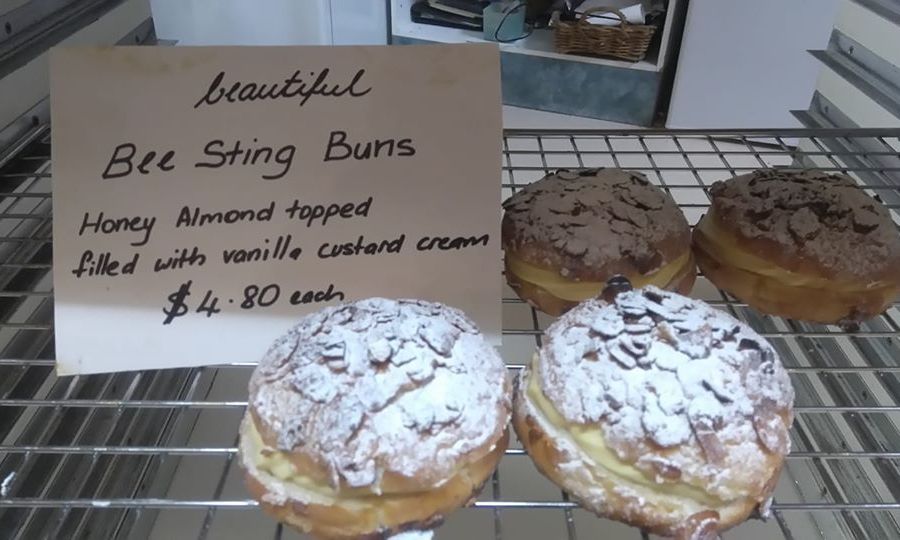 beautiful
Bee Sting Buns
Honey Almond topped
filled with vanilla custard cream
$4.80 each